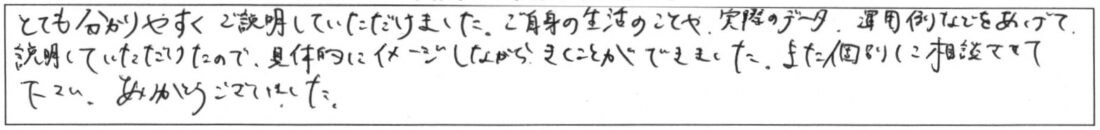 とても分かりやすくご説明していただけました。ご自身の生活のことや、実際のデータ、運用例などをあげて、
説明していただけたので、具体的にイメージしながらきくことができました。また個別に相談させて
下さい。ありがとうございました。